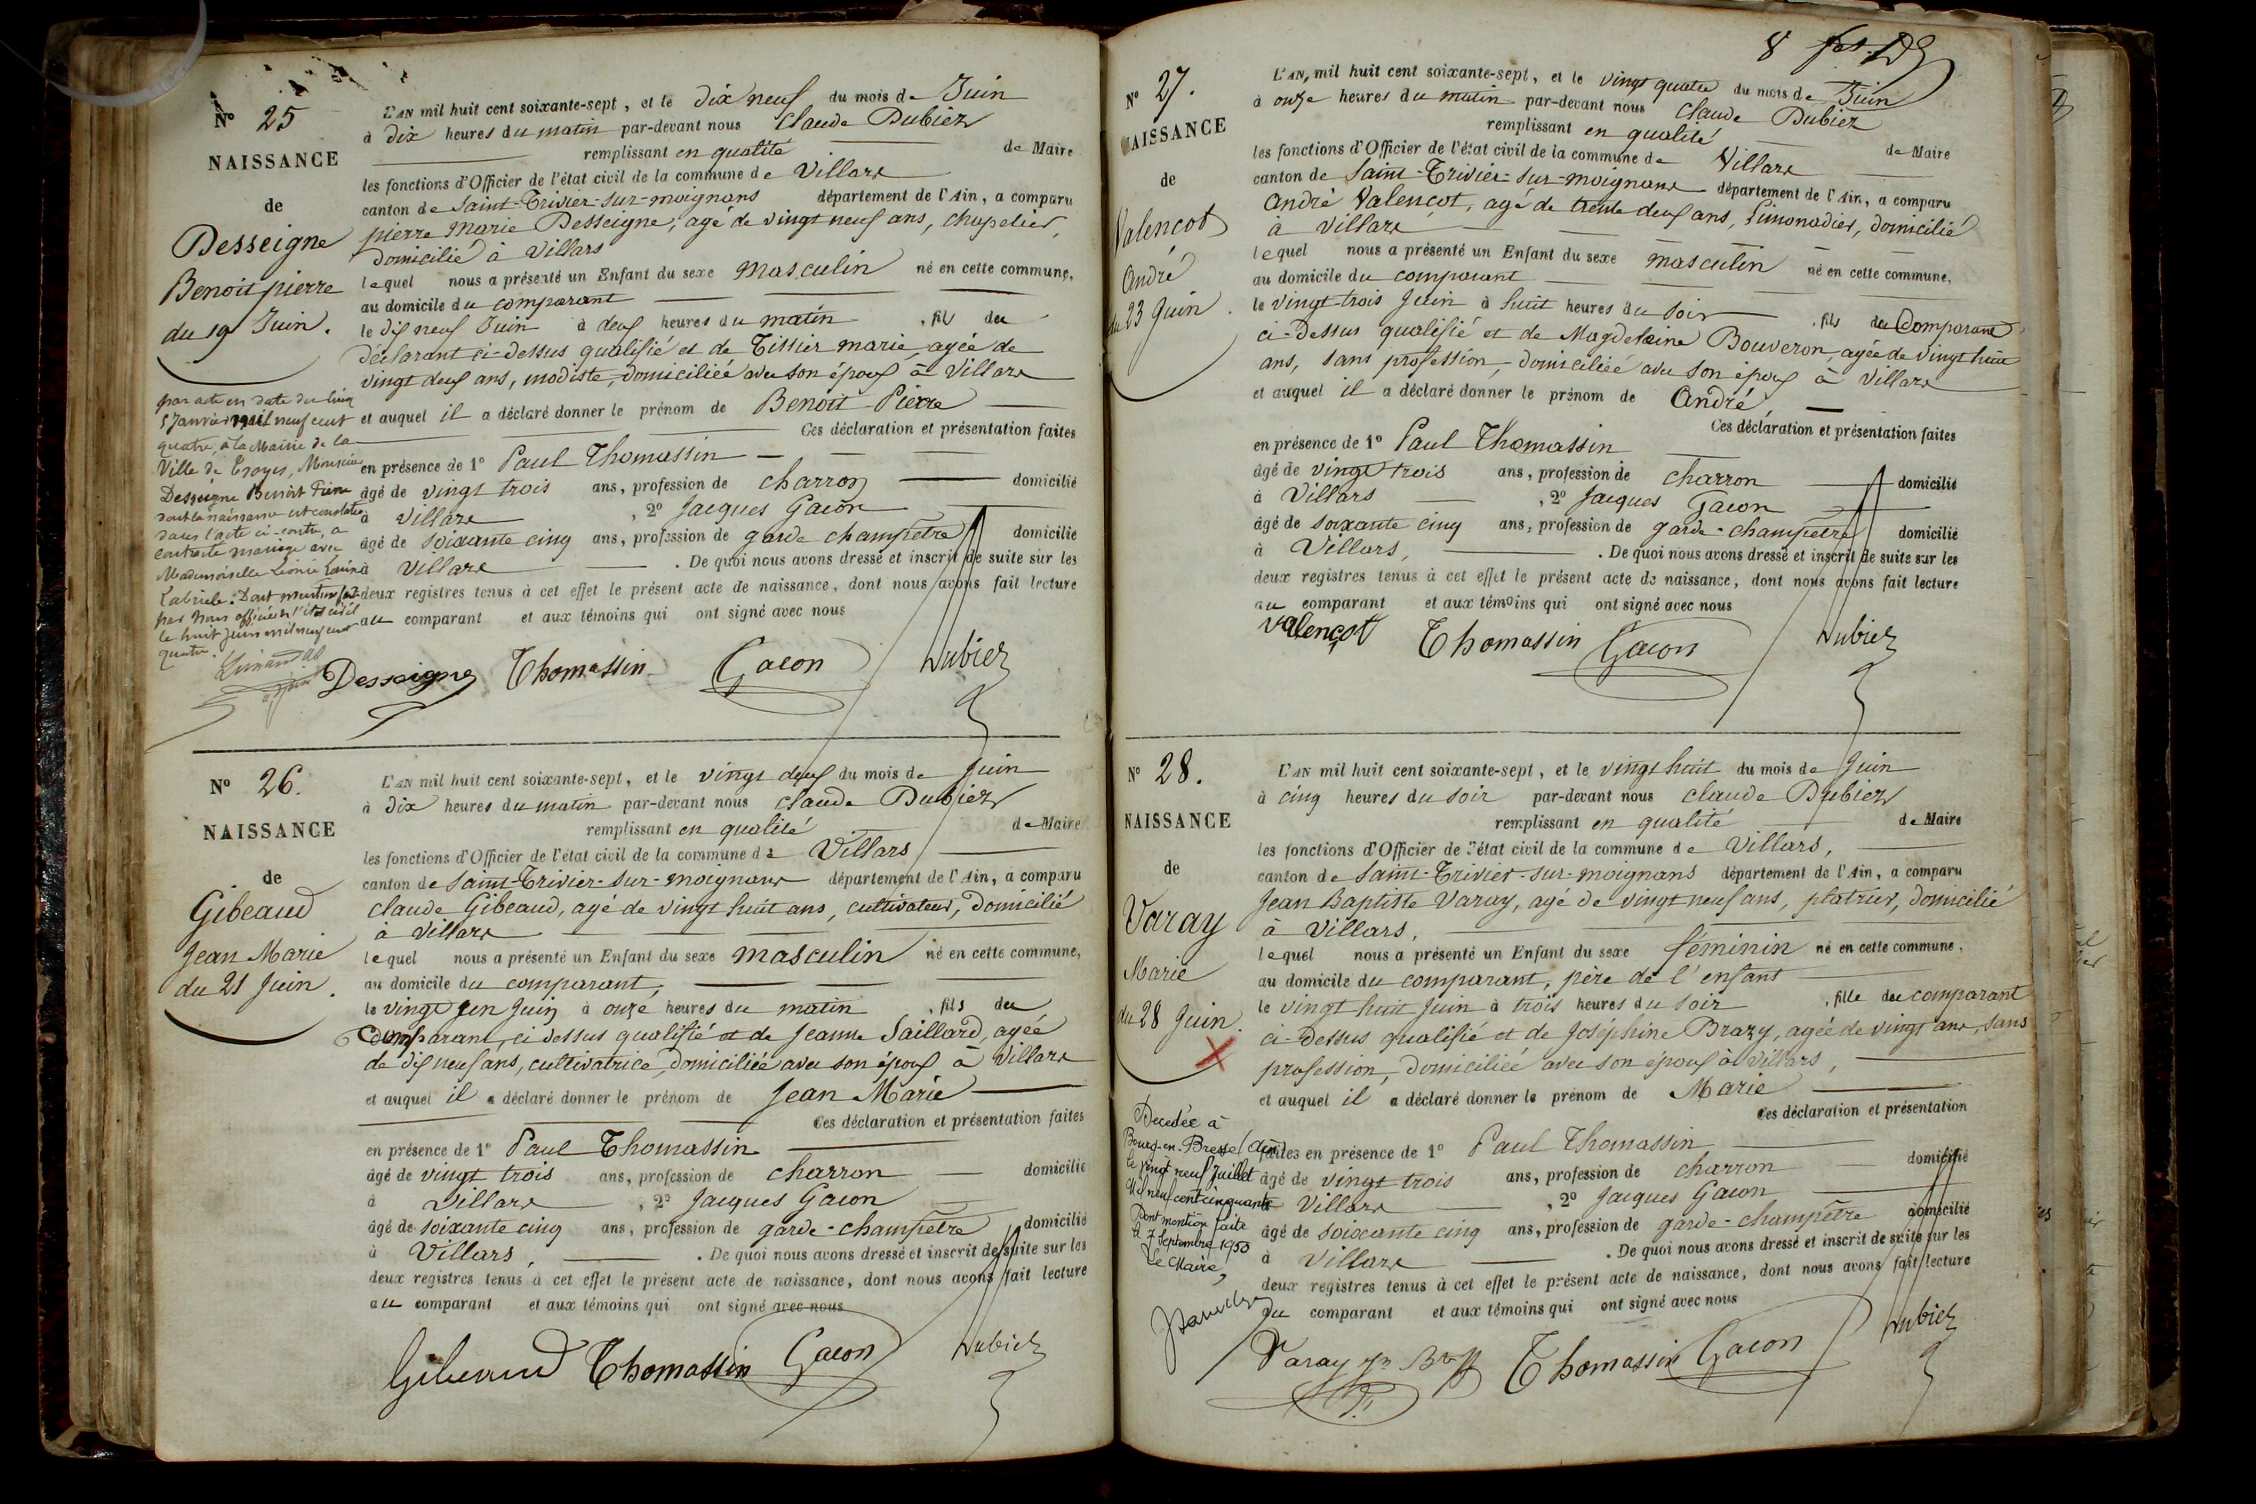 N° 25
NAISSANCE
de
Desseigne
Benoit pierre
du 19 Juin.
L'AN mil huit cent soixante-sept, et le dix neuf du mois de Juin
à dix heures du matin par-devant nous Claude Dubiez
remplissant en qualité de Maire
les fonctions d'Officier de l'état civil de la commune de Villars
canton de Saint-Trivier-sur-moignans département de l'Ain, a comparu
pierre marie Desseigne, agé de vingt neuf ans, chapelier,
domicilié à Villars
lequel nous a présenté un Enfant du sexe masculin né en cette commune,
au domicile du comparant
le dix neuf Juin à deux heures du matin, fils du
déclarant ci-dessus qualifié et de Tissier marie, agée de
vingt deux ans, modiste, domiciliée avec son époux à Villars
et auquel il a déclaré donner le prénom de Benoit Pierre
Ces déclaration et présentation faites
en présence de 1° Paul Thomassin
âgé de vingt trois ans, profession de charron domicilié
à Villars, 2° Jacques Gacon
âgé de soixante cinq ans, profession de garde champêtre domicilié
à Villars. De quoi nous avons dressé et inscrit de suite sur les
deux registres tenus à cet effet le présent acte de naissance, dont nous avons fait lecture
au comparant et aux témoins qui ont signé avec nous
par acte en date du cinq
Janvier mil neuf cent
quatre, à la Mairie de la
Ville de Troyes, Monsieur
Desseigne Benoit Pierre
dont la naissance est constatée
dans l'acte ci-contre, a
contracté mariage avec
Mademoiselle Léonie
Dont mention faite
par nous officier de l'état civil
le huit mil neuf cent
quatre.
Desseigne Thomassin Gacon Dubiez
N° 26.
NAISSANCE
de
Gibeaud
Jean Marie
du 21 Juin.
L'AN mil huit cent soixante-sept, et le vingt deux du mois de Juin
à dix heures du matin par-devant nous Claude Dubiez
remplissant en qualité de Maire
les fonctions d'Officier de l'état civil de la commune de Villars
canton de Saint-Trivier-sur-moignans département de l'Ain, a comparu
Claude Gibeaud, agé de vingt huit ans, cultivateur, domicilié
à Villars
lequel nous a présenté un Enfant du sexe masculin né en cette commune,
au domicile du comparant,
le vingt un Juin à onze heures du matin, fils du
Comparant, ci dessus qualifié et de Jeanne Saillard, agée
de dix neuf ans, cultivatrice, domiciliée avec son époux à Villars
et auquel il a déclaré donner le prénom de Jean Marie
Ces déclaration et présentation faites
en présence de 1° Paul Thomassin
âgé de vingt trois ans, profession de charron domicilié
à Villars, 2° Jacques Gacon
âgé de soixante cinq ans, profession de garde-champêtre domicilié
à Villars, . De quoi nous avons dressé et inscrit de suite sur les
deux registres tenus à cet effet le présent acte de naissance, dont nous avons fait lecture
au comparant et aux témoins qui ont signé avec nous
Gibeaud Thomassin Gacon Dubiez
8
N° 27.
NAISSANCE
de
Valençot
André
du 23 Juin.
L'AN, mil huit cent soixante-sept, et le vingt quatre du mois de Juin
à onze heures du matin par-devant nous Claude Dubiez
remplissant en qualité de Maire
les fonctions d'Officier de l'état civil de la commune de Villars
canton de Saint-Trivier-sur-moignans département de l'Ain, a comparu
André Valençot, agé de trente deux ans, limonadier, domicilié
à Villars
lequel nous a présenté un Enfant du sexe masculin né en cette commune,
au domicile du comparant
le vingt trois Juin à huit heures du soir, fils du Comparant
ci-dessus qualifié et de Magdeleine Bouveron, agée de vingt huit
ans, sans profession, domiciliée avec son époux à Villars
et auquel il a déclaré donner le prénom de André
Ces déclaration et présentation faites
en présence de 1° Paul Thomassin
âgé de vingt trois ans, profession de charron domicilié
à Villars, 2° Jacques Gacon
âgé de soixante cinq ans, profession de garde-champêtre domicilié
à Villars, . De quoi nous avons dressé et inscrit de suite sur les
deux registres tenus à cet effet le présent acte de naissance, dont nous avons fait lecture
au comparant et aux témoins qui ont signé avec nous
Valençot Thomassin Gacon Dubiez
N° 28.
NAISSANCE
de
Varay
Marie
du 28 Juin.
L'AN mil huit cent soixante-sept, et le vingt huit du mois de Juin
à cinq heures du soir par-devant nous Claude Dubiez
remplissant en qualité de Maire
les fonctions d'Officier de l'état civil de la commune de Villars,
canton de Saint-Trivier-sur-moignans département de l'Ain, a comparu
Jean Baptiste Varay, agé de vingt neuf ans, platrier, domicilié
à Villars,
lequel nous a présenté un Enfant du sexe féminin né en cette commune,
au domicile du comparant, père de l'enfant
le vingt huit Juin à trois heures du soir, fille du comparant
ci-dessus qualifié et de Joséphine Brazy, agée de vingt ans, sans
profession, domiciliée avec son époux à Villars,
et auquel il a déclaré donner le prénom de Marie
Ces déclaration et présentation
faites en présence de 1° Paul Thomassin
âgé de vingt trois ans, profession de charron domicilié
Villars, 2° Jacques Gacon
âgé de soixante cinq ans, profession de garde-champêtre domicilié
à Villars. De quoi nous avons dressé et inscrit de suite sur les
deux registres tenus à cet effet le présent acte de naissance, dont nous avons fait lecture
au comparant et aux témoins qui ont signé avec nous
Décédée à
Bourg-en-Bresse (Ain)
le vingt neuf Juillet
mil neuf cent cinquante
Dont mention faite
le 7 Septembre 1950
Le Maire,
Varay Jn Bte Thomassin Gacon Dubiez